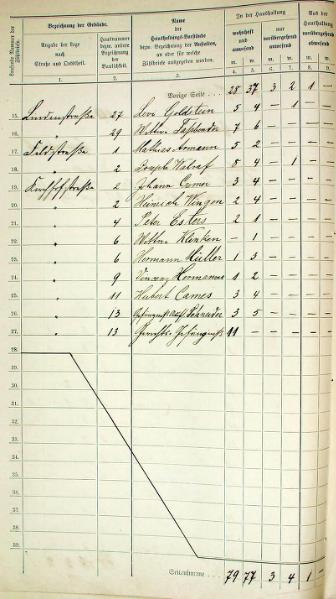 Bezeichnung der Gebäude.
Name
der
Haushaltungs-Vorstände
bezw. Bezeichnung der Anstalten,
an oder für welche
Zählbriefe ausgegeben wurden.
In der Haushaltung
Angabe der Lage
nach
Straße und Ortstheil.
Hausnummer
bezw. andere
Bezeichnung der
Baulichkeit.
wohnhaft
und
anwesend
vorübergehend
anwesend
1. 2. 3. 4. 5. 6. 7. 8. 9.
m. w. m. w. m. w.
Vorige Seite 28 37 3 2 1 –
15. 27 Levi Goldstein 5 4 – 1 – –
16. " 29 Wittwe 7 6 – – – –
17. Feldstraße 1 Mathias 5 2 – – – –
18. " 2 Joseph 8 4 – 1 – –
19. Kirchhofstraße 2 Johann 3 4 – – – –
20. " 2 Heinrich Wingen 2 4 – – – –
21. " 4 Peter Esters 2 1 – – – –
22. " 6 Wittwe Klinken – 1 – – – –
23. " 6 Hermann Müller 1 3 – – – –
24. " 9 Hermanns 1 2 – – – –
25. " 11 Hubert Cames 3 4 – – – –
26. " 13 Schneider 3 5 – – – –
27. " 13 Gefängniß 11 – – – – –
28.
29.
30.
31.
32.
33.
34.
35.
36.
37.
38.
39.
Seitensumme 79 77 3 4 1 –